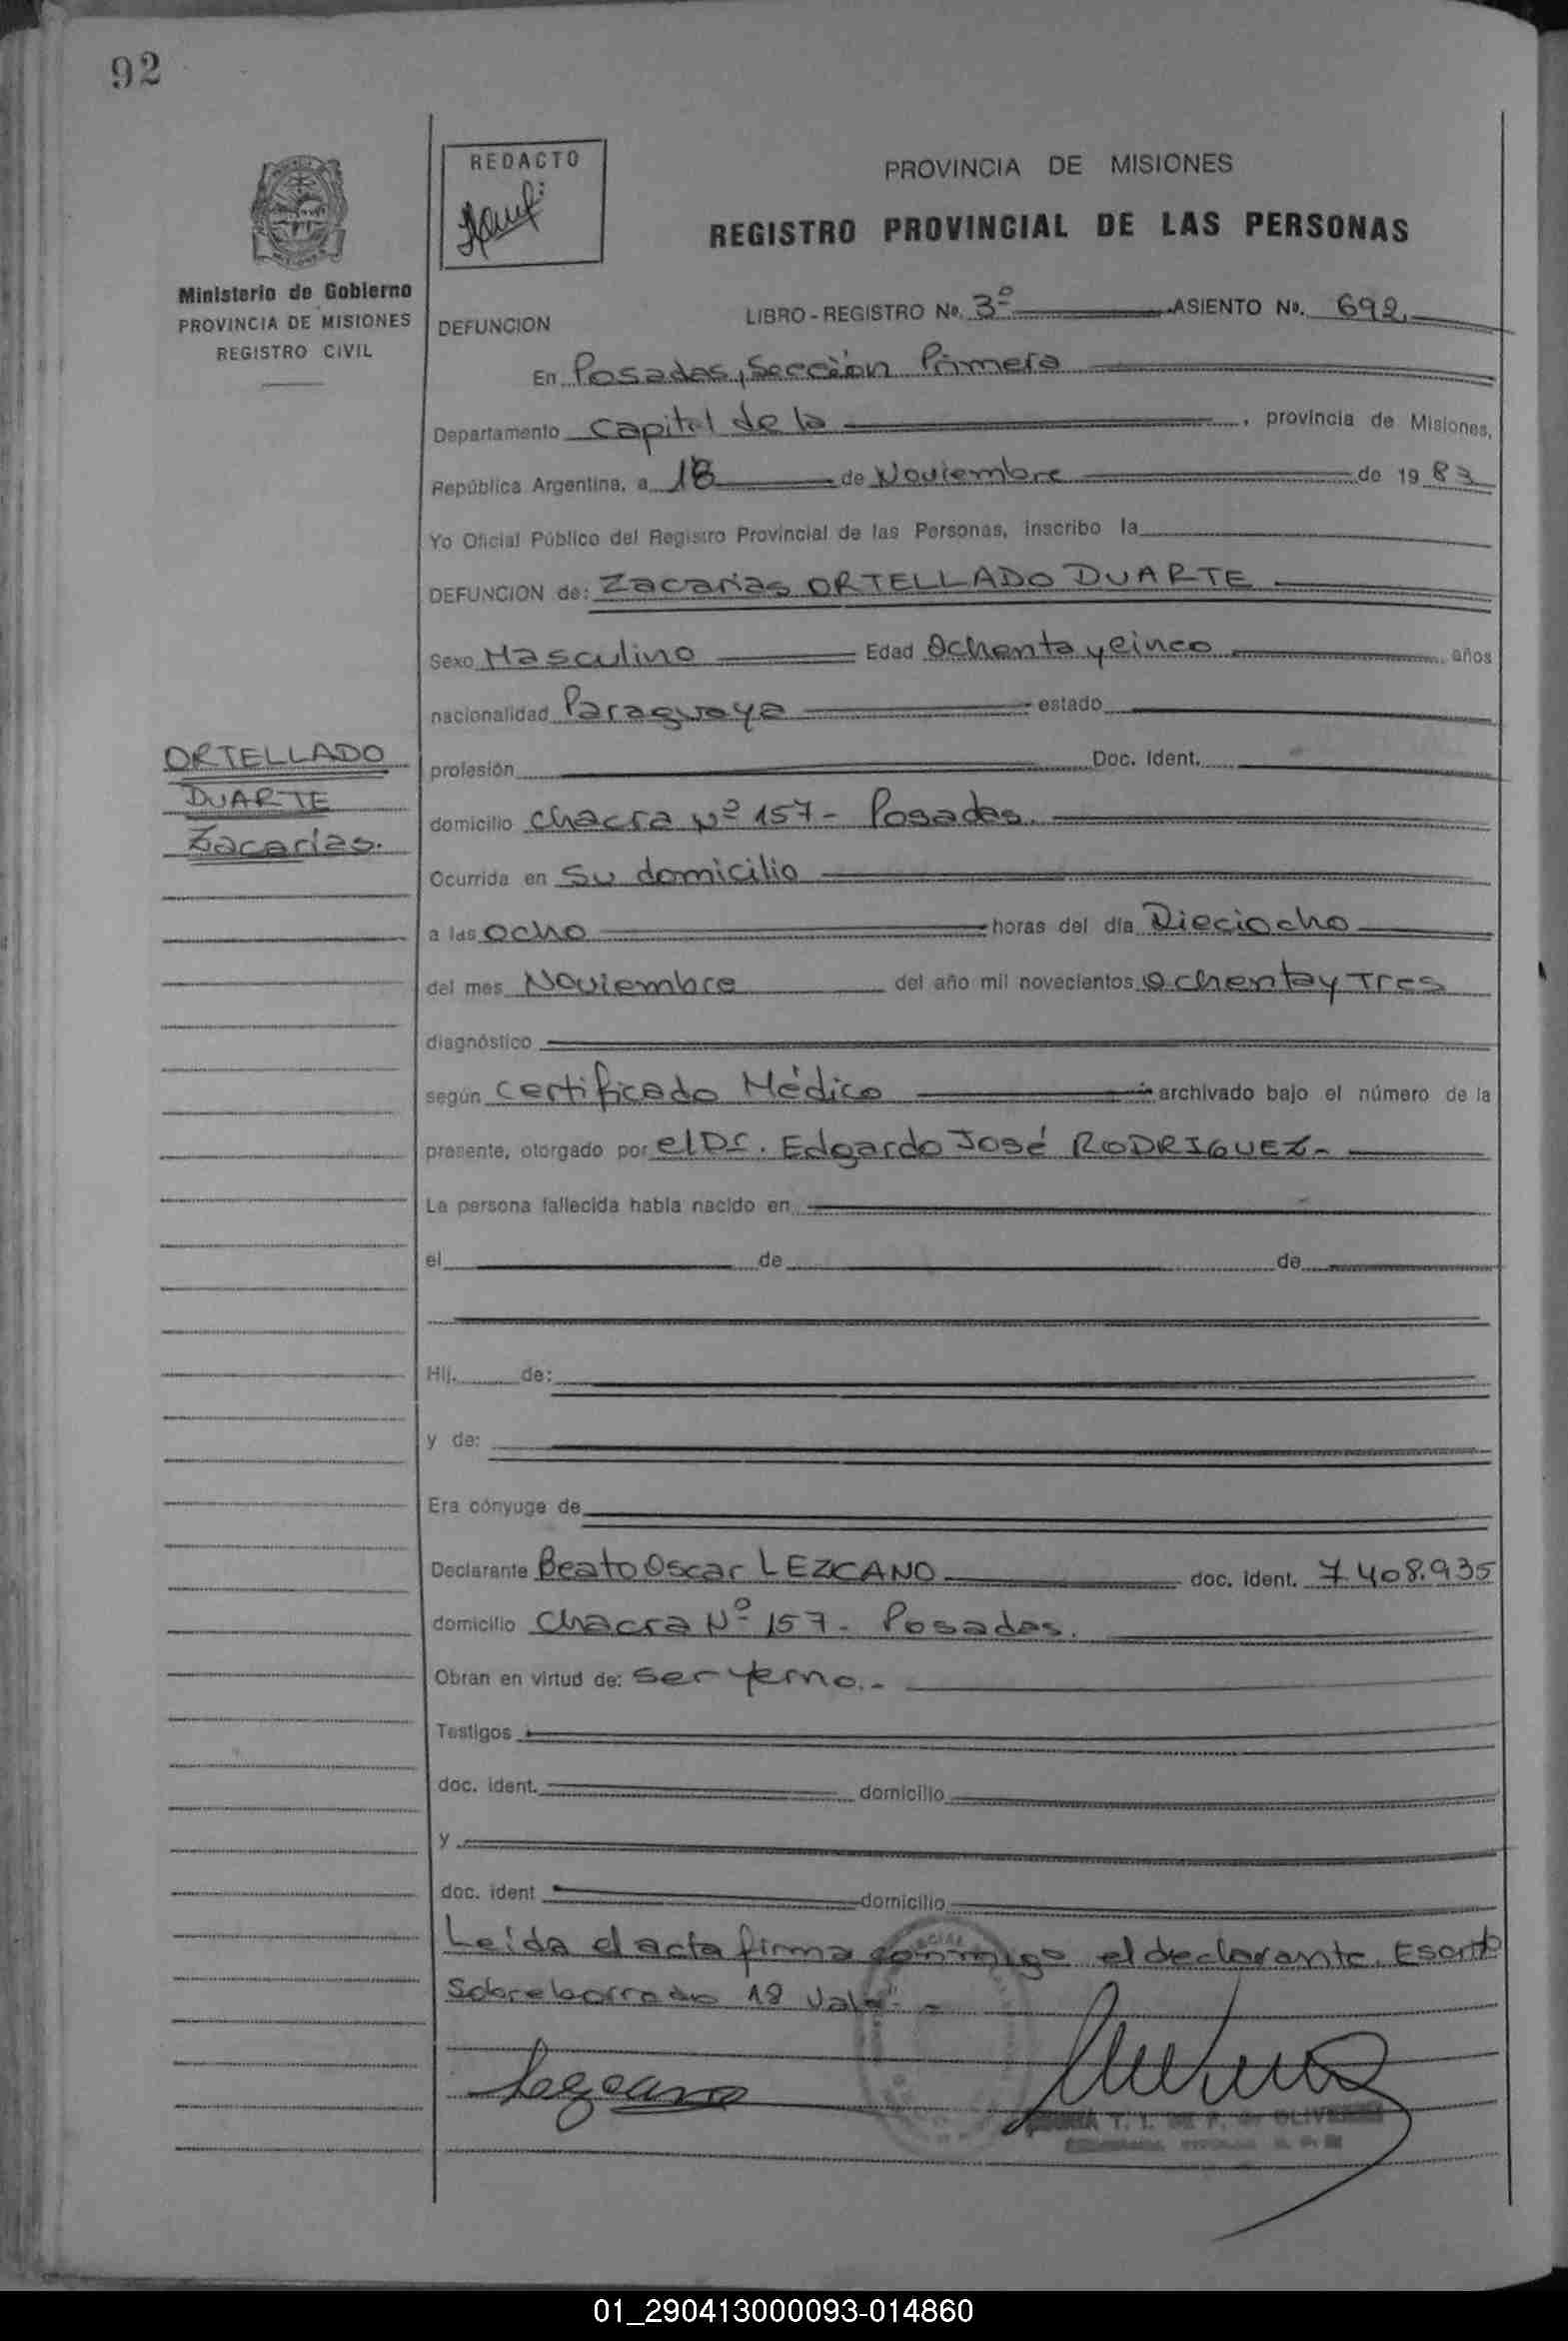 92
REDACTO
PROVINCIA DE MISIONES
REGISTRO PROVINCIAL DE LAS PERSONAS
Ministerio de Gobierno
PROVINCIA DE MISIONES
REGISTRO CIVIL
DEFUNCION
LIBRO - REGISTRO Nº. 3º ASIENTO Nº. 692
En Posadas, Sección Primera
Departamento Capital de la , provincia de Misiones,
República Argentina, a 18 de Noviembre de 1983
Yo Oficial Público del Registro Provincial de las Personas, inscribo la
DEFUNCION de: Zacarías ORTELLADO DUARTE
Sexo Masculino Edad Ochenta y cinco años
nacionalidad Paraguaya estado
ORTELLADO
DUARTE
Zacarías.
profesión Doc. Ident.
domicilio chacra Nº 157 - Posadas.
Ocurrida en Su domicilio
a las ocho horas del día Dieciocho
del mes Noviembre del año mil novecientos ochenta y Tres
diagnóstico
según certificado Médico archivado bajo el número de la
presente, otorgado por el Dr. Edgardo José RODRIGUEZ.-
La persona fallecida había nacido en
el de de
Hij. de:
y de:
Era cónyuge de
Declarante Beato Oscar LEZCANO doc. ident. 7.408.935
domicilio Chacra Nº 157 - Posadas.
Obran en virtud de: ser yerno.-
Testigos
doc. ident. domicilio
y
doc. ident domicilio
Leída el acta firma conmigo el declarante. Escrito
Sobreborrado 18 Vale".-
Lezcano
01_290413000093-014860